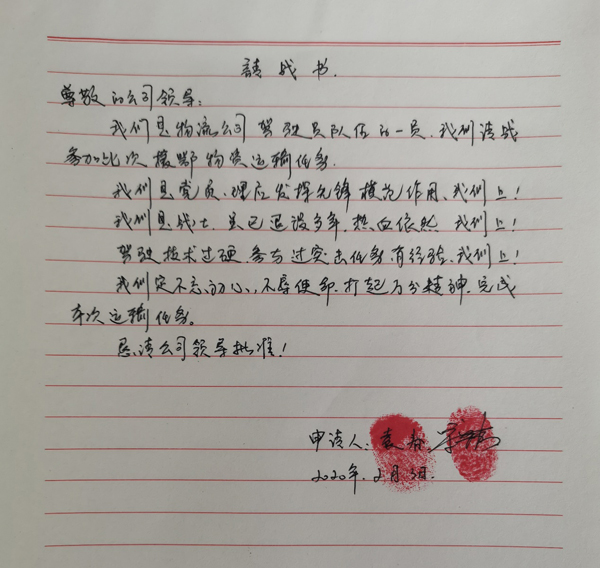 請战书.
尊敬的公司领导:
我们是物流公司驾驶员队伍的一员.我们请战
参加此次援鄂物资运输任务.
我们是党员、理应发挥先锋模范作用、我们上!
我们是战士、虽已退役多年,热血依然 我们上!
驾驶技术过硬、参与过突击任务有经验、我们上!
我们定不忘初心,不辱使命.打起万分精神.完成
本次运输任务。
恳请公司领导批准!
申请人:袁春
2020年.2月3日.